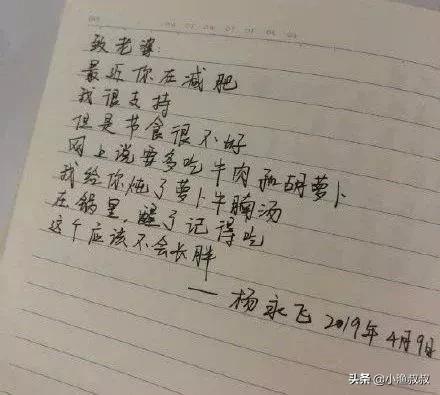 致老婆:
最近你在减肥
我很支持
但是节食很不好
网上说要多吃牛肉和胡萝卜
我给你炖了萝卜牛腩汤
在锅里,醒了记得吃
这个应该不会长胖
— 杨永飞 2019年4月9日
头条 @小渔叔叔